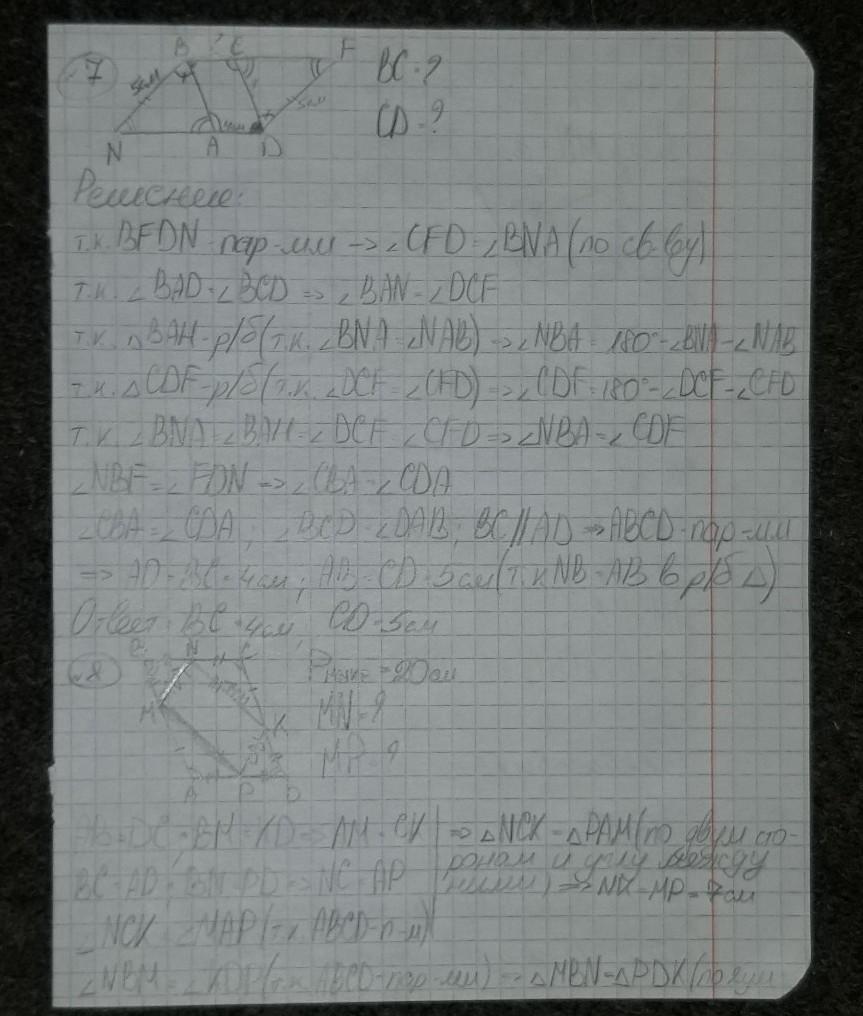 7 B C F BC-?
5см 5см CD-?
4см
N A D
Решение:
т.к. BFDN-пар-мм => ∠CFD=∠BNA (по св-ву)
т.к. ∠BAD=∠BCD => ∠BAN=∠DCF
т.к. △BAH-р/б(т.к. ∠BNA=∠NAB) => ∠NBA=180°-∠BNA-∠NAB
т.к. △CDF-р/б(т.к. ∠DCF=∠CFD) => ∠CDF=180°-∠DCF-∠CFD
т.к. ∠BNA=∠BAH=∠DCF=∠CFD => ∠NBA=∠CDF
∠NBF=∠FDN => ∠CBA=∠CDA
∠CBA=∠CDA; ∠BCD=∠DAB; BC//AD => ABCD-пар-мм
=> AD=BC=4см; AB=CD=5см(т.к NB=AB в р/б △)
Ответ: BC=4см, CD=5см
8 N C =20см
M MN-?
K MP-?
P D
AB=DC; BM=KD => AM=CK => △NCK=△PAM(по двум сто-
ронам и углу между
BC=AD; BN=PD => NC=AP ними) => NK=MP=7см
∠NCK=∠MAP(т.к. ABCD-п-м)
∠NBM=∠KDP(т.к. ABCD-пар-мм) => △MBN=△PDK(по